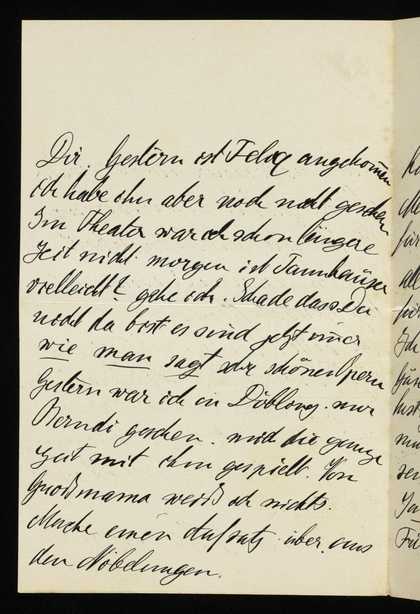 Dir. Gestern ist Felix angekommen
ich habe ihn aber noch nicht gesehen
Im Theater war ich schon längere
Zeit nicht. morgen ist Tannhäuser
vielleicht? gehe ich. Schade dass Du
nicht da bist es sind jetzt immer
wie man sagt sehr schöne Opern
Gestern war ich in Döbling. nur
gesehen. und die ganze
Zeit mit ihm gespielt. Von
Grossmama weiss ich nichts.
Mache einen Aufsatz über. aus
den Nibelungen.